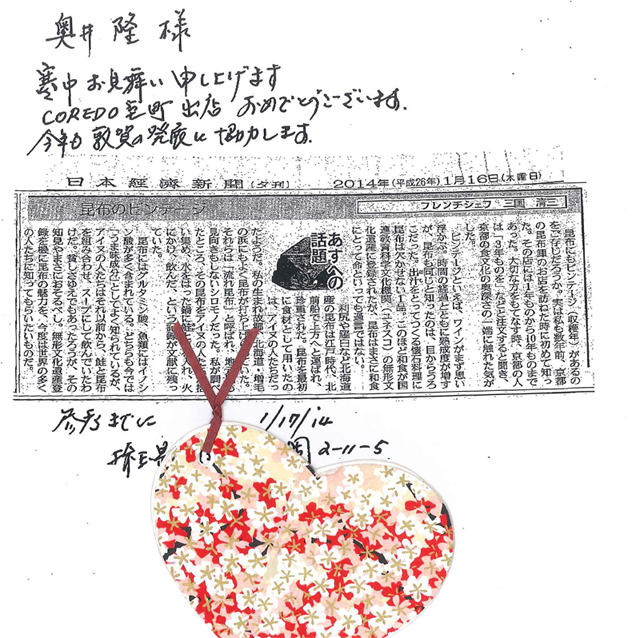 奥井 隆 様
寒中お見舞い申し上げます
COREDO室町 出店 おめでとうございます.
今年も敦賀の発展に協力します.
日本経済新聞(夕刊) 2014年(平成26年)1月16日(木曜日)
昆布のビンテージ フレンチシェフ 三国 清三
あすへの
話題
昆布にもビンテージ(収穫年)があるの
をご存じだろうか。実は私も数年前、京都
の昆布庫のお店を訪ねた時に初めて知っ
た。その店には1年ものから10年ものまで
あった。大切な方をもてなす時、京都の人
は「3年ものを」などと注文すると聞き、
京都の食文化の奥深さの一端に触れた気が
した。
ビンテージといえば、ワインがまず思い
浮かぶ。時間の経過とともに熟成度が増す
が、昆布も同じと知ったのは、目からうろ
こだった。出汁をとってつくる懐石料理に
昆布は欠かせない1品。このほど和食が国
連教育科学文化機関(ユネスコ)の無形文
化遺産に登録されたが、昆布はまさに和食
にとって命といっても過言ではない。
利尻や羅臼など北海道
産の昆布は江戸時代、北
前船で上方へと運ばれ、
珍重された。昆布を最初
に食材として用いたの
は、アイヌの人たちだっ
たようだ。私の生まれ故郷、北海道・増毛
の浜にもよく昆布が打ち上
それらは「流れ昆布」と呼ばれ、地元
見向きもしないシロモノだった。私が調べ
たところ、その昆布をアイヌの人
い集め、水をはった鍋に
にかけ、飲んだ、という
ていた。
昆布にはグルタミン酸、魚類にはイノシ
ン酸が多く含まれている。どちらも今では
「うま味成分」としてよく知られているが、
アイヌの人たちはそれ以前から、鮭と昆布
を組み合わせ、スープにして飲んでいたわ
けだ。「貧しさゆえ」でもあろうが、その
知見やまさにおそるべし。無形文化遺産登
録を機に昆布の魅力を、今度は世界の多く
の人たちに知ってもらいたい。
参考までに 1/17/14
埼玉県 2-11-5